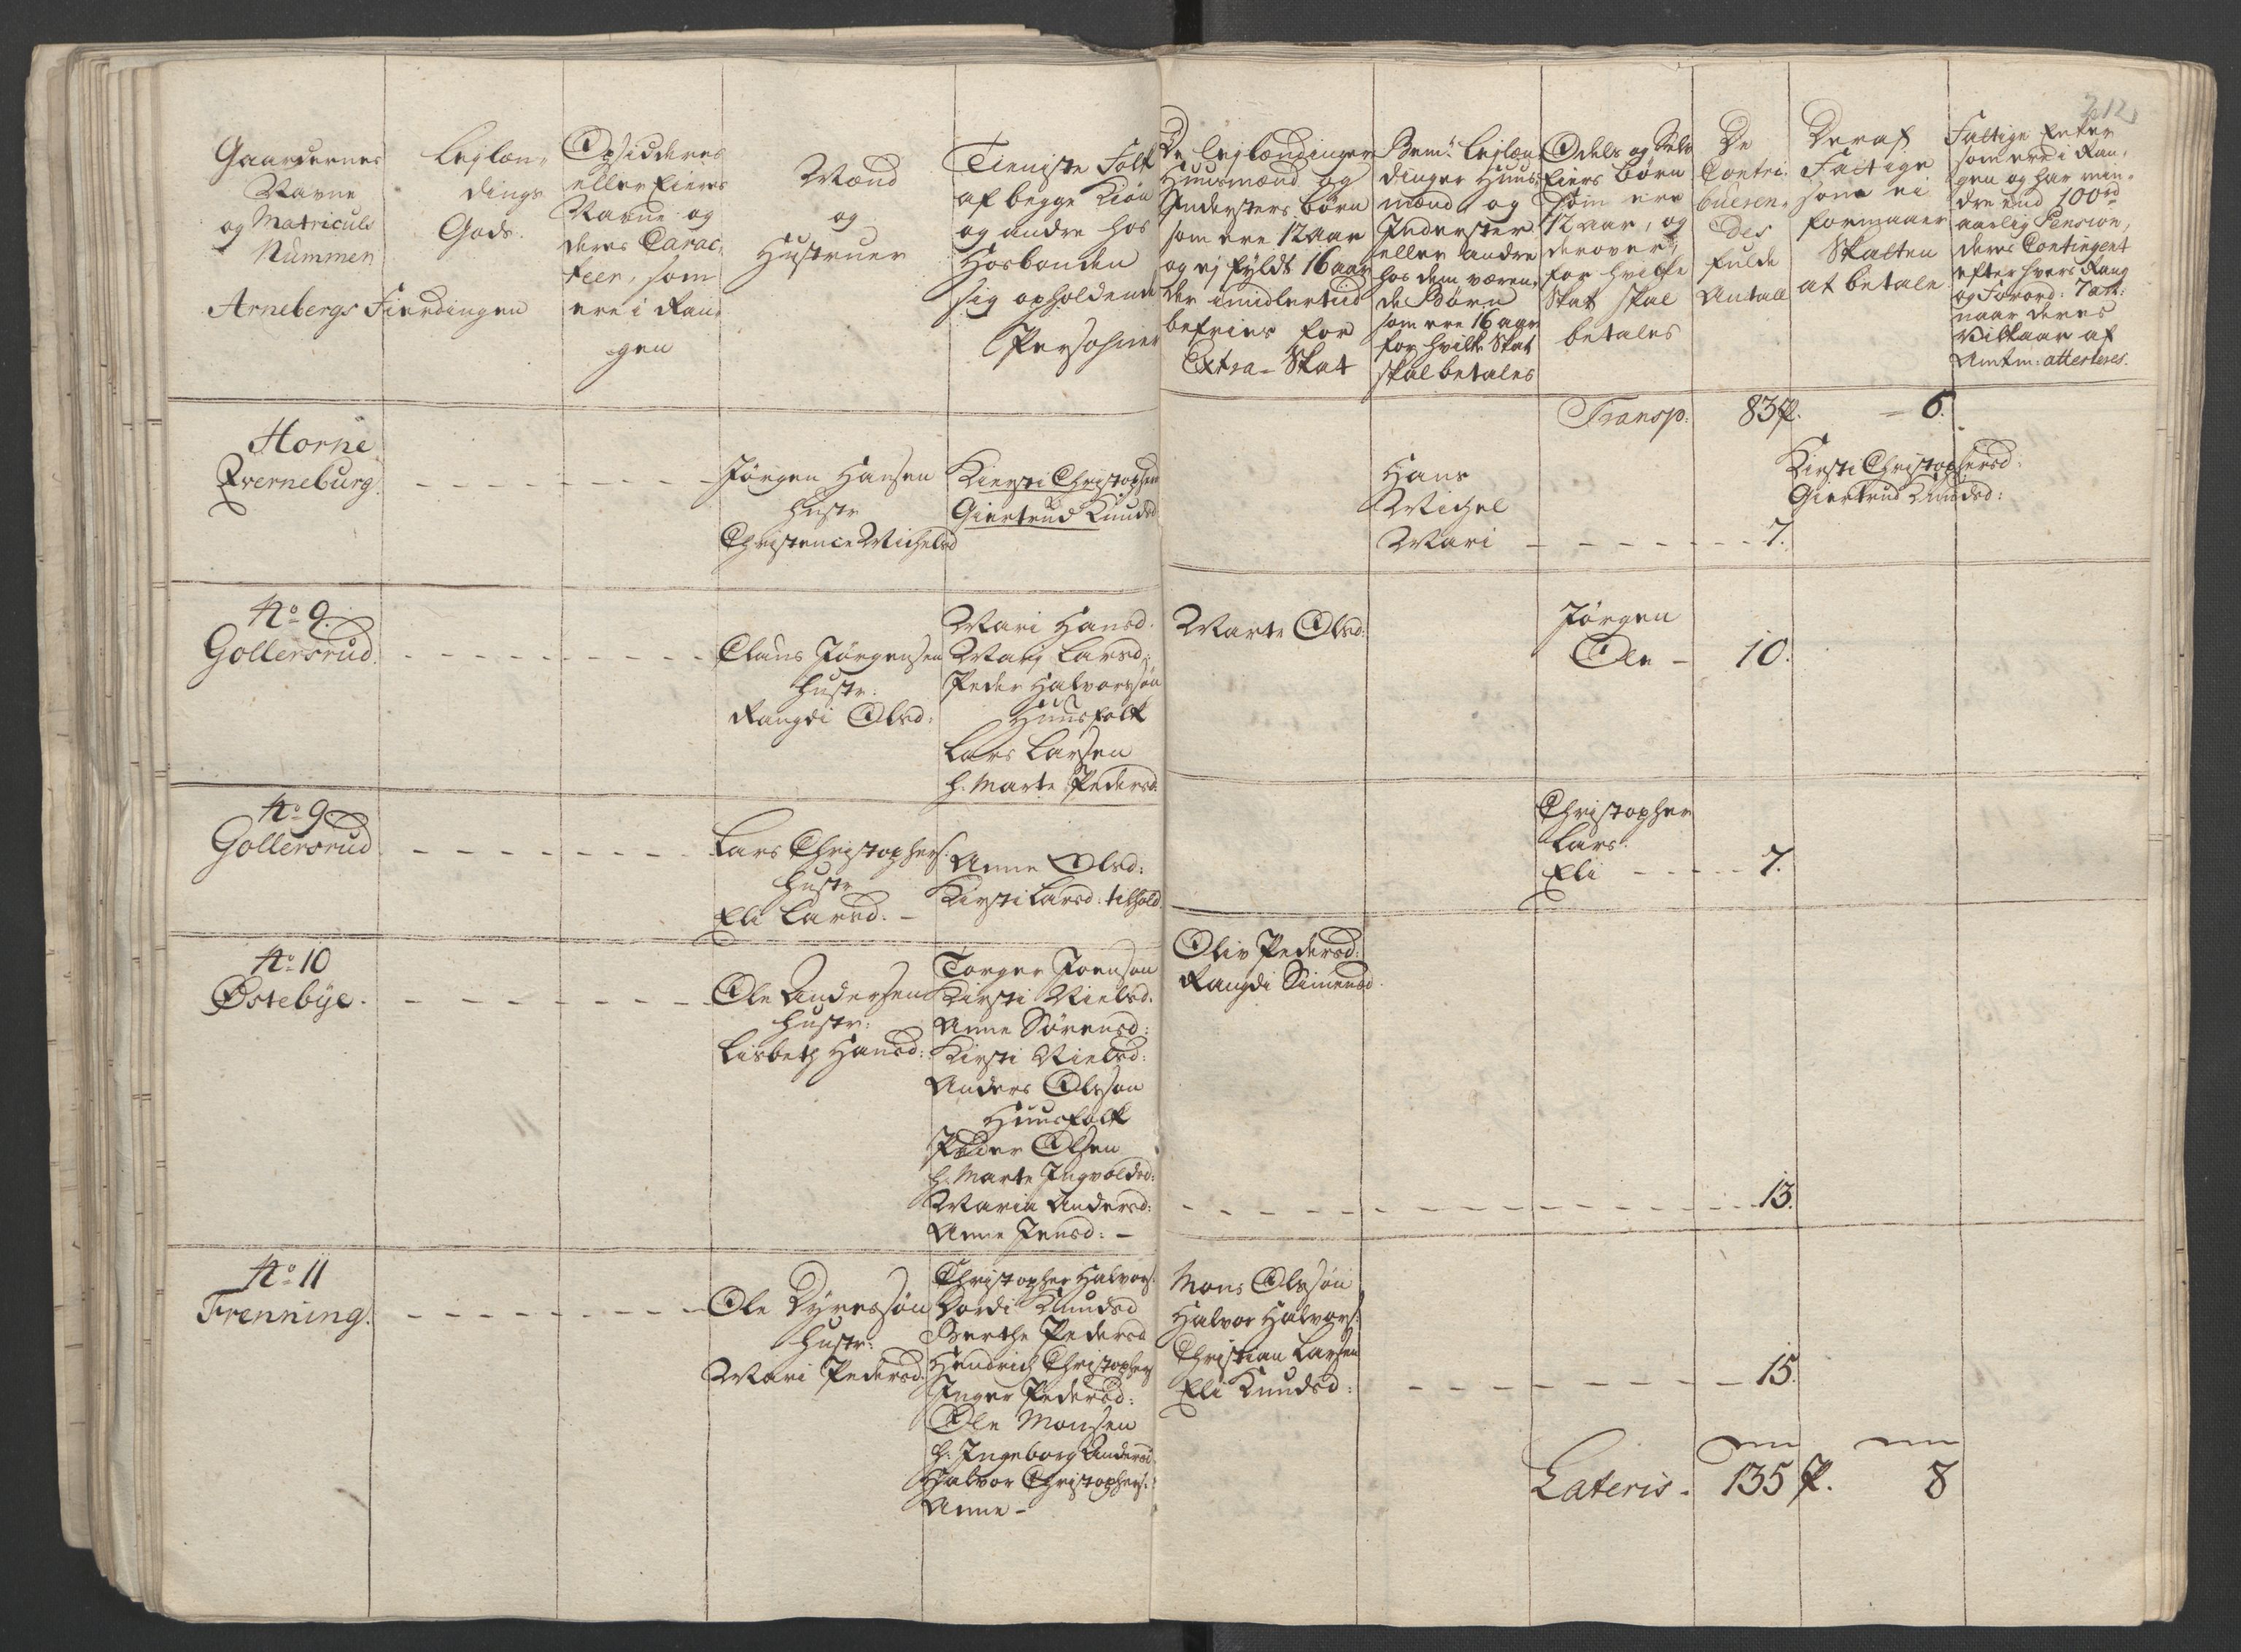 212
Gaardernes
Navne
og Matriculs
Nummer
Arnebergs Fierdingen
Lejlæn-
dings
Gods.
Opsidderes
eller Eieres
Navne og
deres Carac-
teer, som
ere i Ran-
gen
Mænd
og
Hustruer
Tieniste Folk
af begge Kiøn
og andre hos
Hosbonden
sig opholdende
Persohner
De Lejlændinger
Huusmænd og
Inderster børn
som ere 12 aar
og ej fyldt 16 aar
der imidlertiid
befries for
Extra-Skat
Bem: Lejlæn
dinger Huus-
mænd og
Inderster
eller andre
hos dem væren-
de Børn
som ere 16 aar
for hvilke Skat
skal betales
Odels og Selv
Eiers børn
som ere
12 aar, og
derover,
for hvilke
Skat skal
betales
De
Contri-
bueren-
des
fulde
Antall
Deraf
Fattige
som ei
formaaer
Skatten
at betale
Fattige Enker
som ere i Ran-
gen og har min-
dre end 100 rd
aarlig Pension,
deres Contingent
efter hvers Rang
og Forord: 7 art:
naar deres
Vilkaar af
Amtm: attesteres.
Transp: 83 p. - 6.
Horne
Qverneburg.
Jørgen Hansen
Hustr
Christence Michelsd
Kiersti Christophers
Giertrud Knudsd
Hans
Michel
Mari - 7.
Kirsti Christophersd:
Giertrud Knudsd:
No 9.
Gollersrud.
Claus Jørgensen
Hustr:
Rangdi Olsd:
Mari Hansd.
Mary Larsd:
Peder Halvorssøn
Huusfolk
Lars Larsen
h. Marte Pedersd.
Marte Olsd:
Jørgen
Ole - 10.
No 9
Gollersrud
Lars Christophers.
Hustr
Eli Larsd. -
Anne Olsd:
Kirsti Larsd: tilhold
Christopher
Lars.
Eli - 7.
No 10
Østebye.
Ole Andersen
Hustr:
Lisbeth Hansd:
Torger Joensøn
Kirsti Nielsd.
Anne Sørensd:
Kirsti Nielsd:
Anders Olssøn
Huusfolk
Peder Olsen
h. Marte Ingvoldsd:
Maria Andersd:
Anne Jensd: -
Oliv Pedersd:
Rangdi Simensd.
13.
No 11
Frenning.
Ole Dyressøn
Hustr:
Mari Pedersd.
Christopher Halvors.
Dordi Knudsd
Berthe Pedersd
Hendrich Christophers
Inger Pedersd:
Ole Monsen
h. Ingeborg Andersd
Halvor Christophers:
Anne -
Mons Olssøn
Halvor Halvors:
Christian Larsen
Eli Knudsd:
15.
Lateris. 135 p. 8